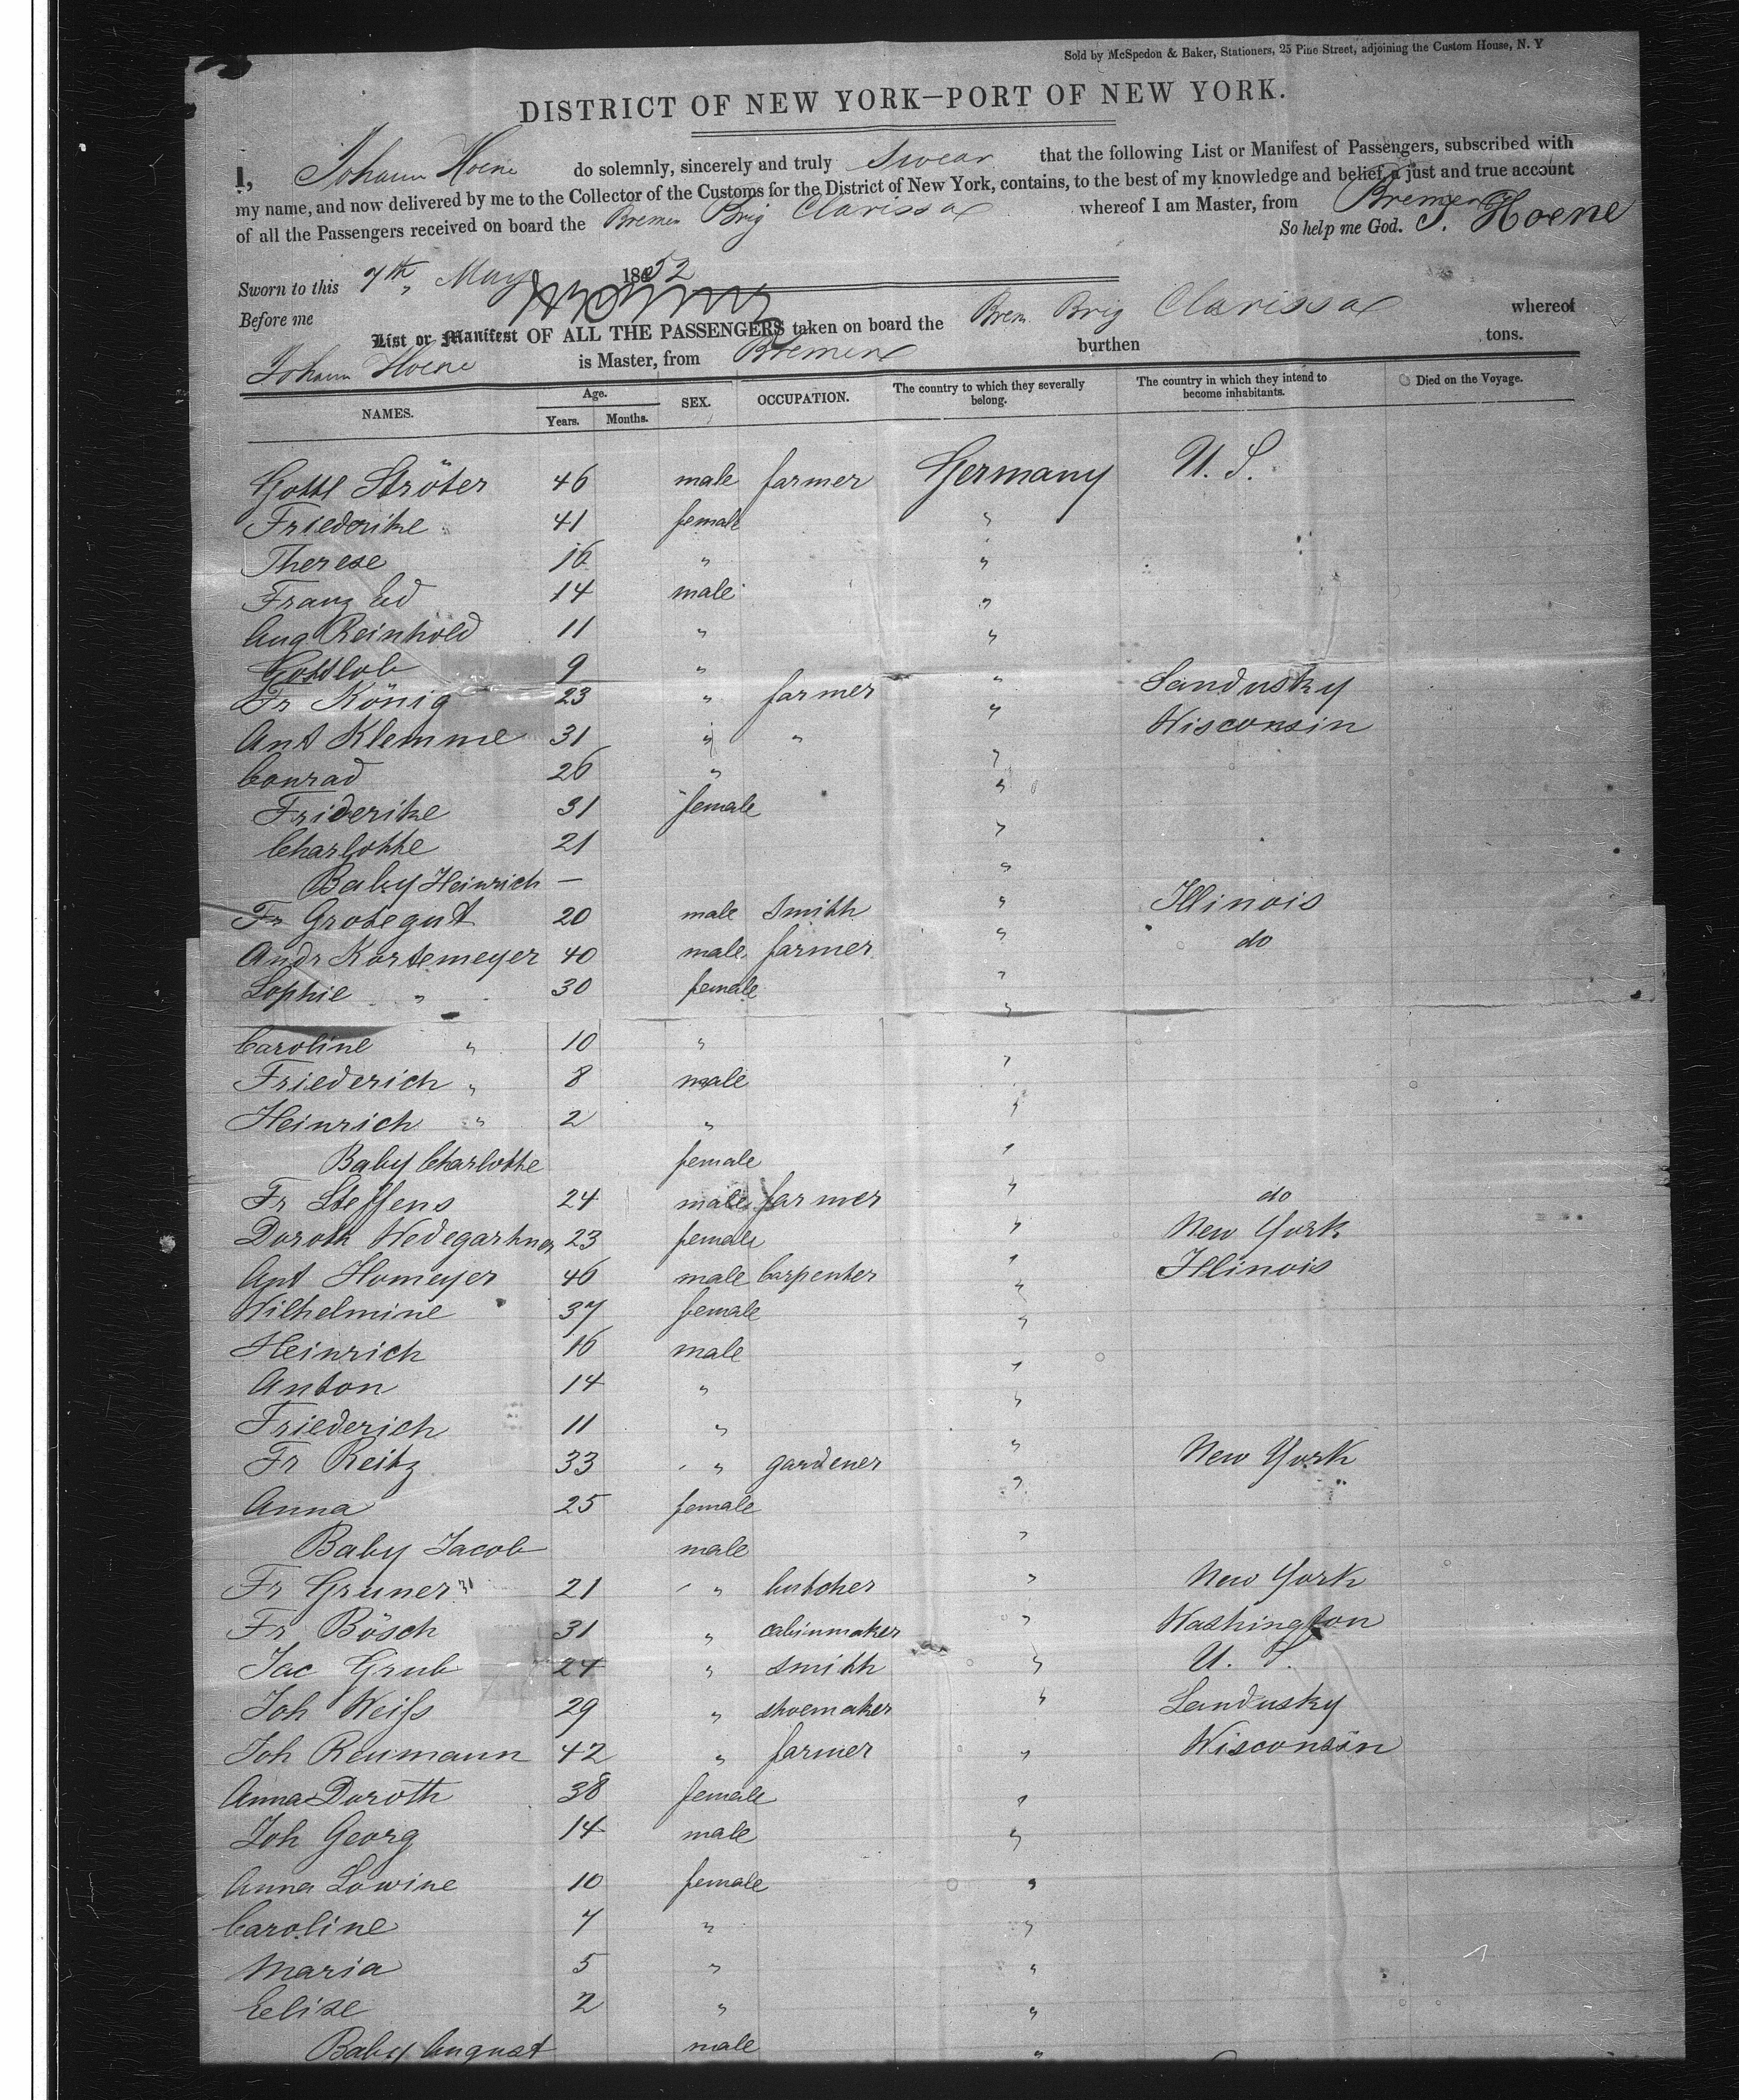 Sold by McSpedon & Baker, Stationers, 25 Pine Street, adjoining the Custom House, N. Y
DISTRICT OF NEW YORK—PORT OF NEW YORK.
I, Johann Hoene do solemnly, sincerely and truly swear that the following List or Manifest of Passengers, subscribed with
my name, and now delivered by me to the Collector of the Customs for the District of New York, contains, to the best of my knowledge and belief, a just and true account
of all the Passengers received on board the Bremen Brig Clarissa whereof I am Master, from Bremen
So help me God. J. Hoene
Sworn to this 7th May 1852
Before me
List or Manifest OF ALL THE PASSENGERS taken on board the Brem. Brig Clarissa whereof
Johann Hoene is Master, from Bremen burthen tons.
NAMES. Age. Years. Months. SEX. OCCUPATION. The country to which they severally belong. The country in which they intend to become inhabitants. Died on the Voyage.
Gottl Ströter 46 male farmer Germany U. S.
Friederike 41 female "
Therese 16 " "
Franz Ed 14 male "
Aug Reinhold 11 " "
Gottlob 9 " "
Fr König 23 " farmer " Sandusky
Ant Klemme 31 " " " Wisconsin
Conrad 26 " "
Friderike 31 female "
Charlotte 21 "
Baby Heinrich — "
Fr Grotegut 20 male Smith " Illinois
Andr Kortemeyer 40 male farmer " do
Sophie " 30 female "
Caroline " 10 " "
Friederich " 8 male "
Heinrich " 2 " "
Baby Charlotte female "
Fr Steffens 24 male farmer " do
Doroth Wedegartner 23 female " New York
Ant Homeyer 46 male Carpenter " Illinois
Wilhelmine 37 female "
Heinrich 16 male "
Anton 14 " "
Friederich 11 " "
Fr Reitz 33 " gardener " New York
Anna 25 female "
Baby Jacob male "
Fr Gruner 21 " butcher " New York
Fr Bösch 31 " cabinmaker " Washington
Jac Grub 24 " Smith " U. S.
Joh Weiſs 29 " shoemaker " Sandusky
Joh Reumann 42 " farmer " Wisconsin
Anna Doroth 38 female "
Joh Georg 14 male "
Anna Lowine 10 female "
Caroline 7 " "
Maria 5 " "
Eelise 2 " "
Baby August male "